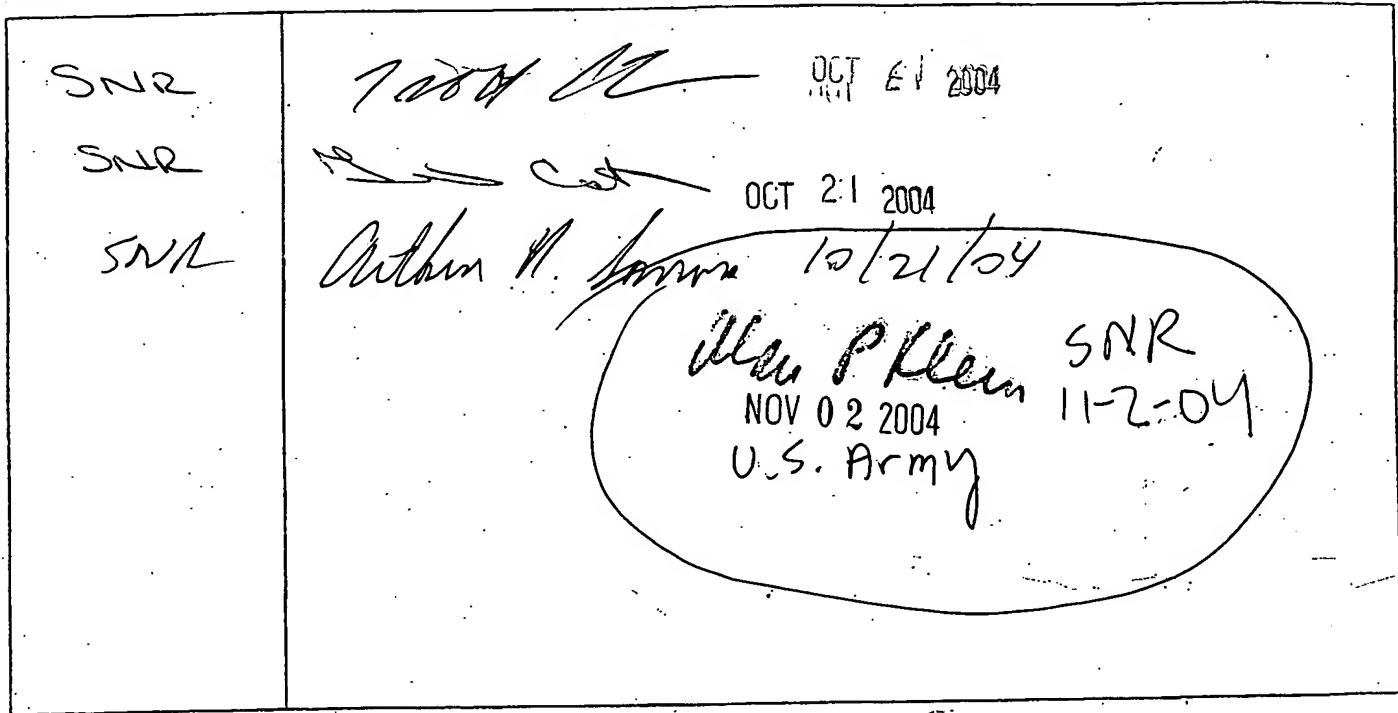 SNR OCT 21 2004
SNR OCT 21 2004
SNR Arthur 10/21/04
Alan P Klein SNR
NOV 02 2004 11-2-04
U.S. Army